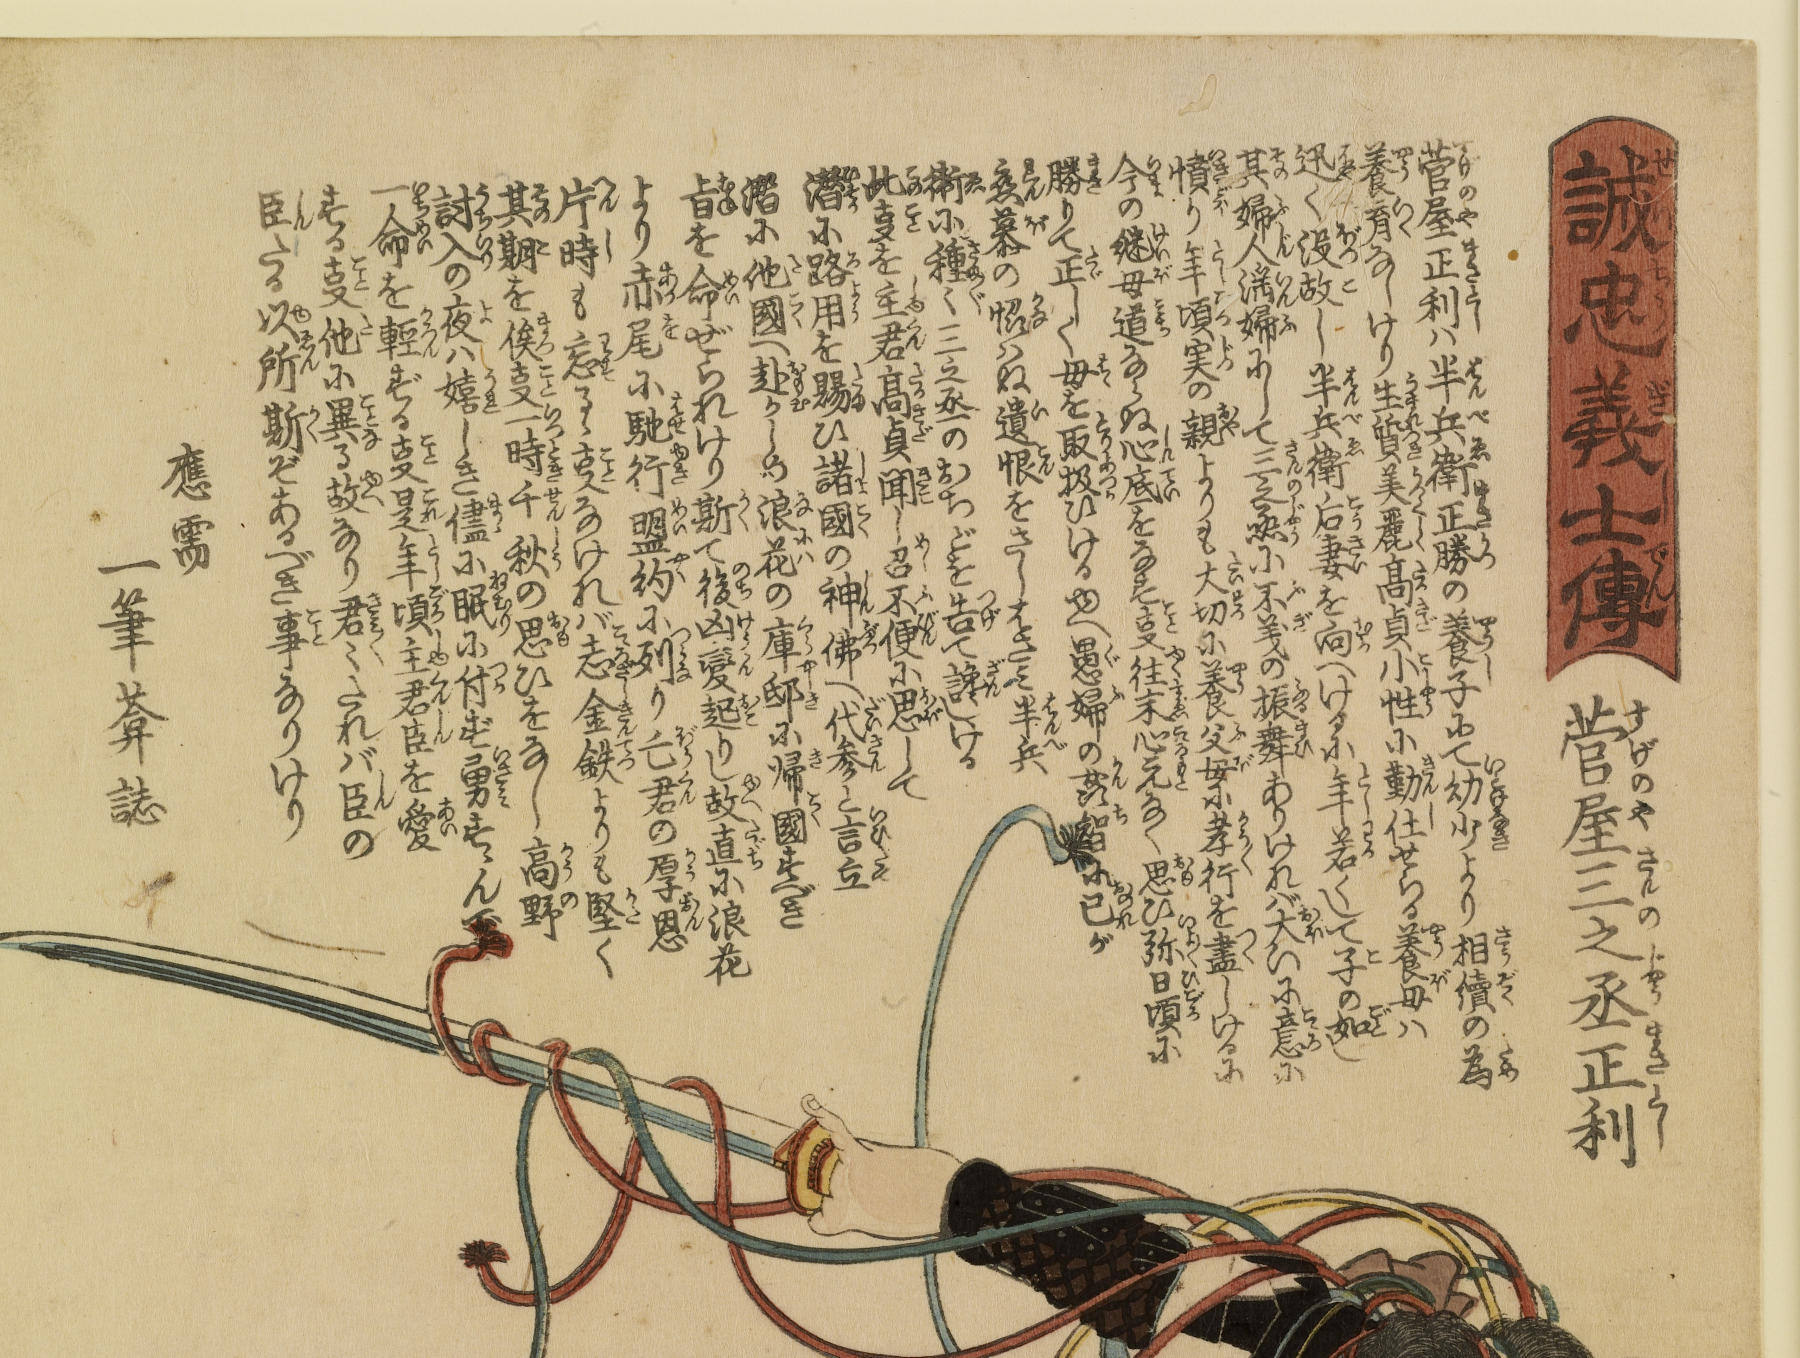 誠忠義士傳
菅屋三之丞正利
菅屋正利ハ半兵衛正勝の養子にて幼少より相續の為
養育なしけり生質美麗髙貞小性に勤仕せらる養母ハ
迅く没故し半兵衛后妻を向へけるに年若くして子の如し
其婦人滛婦にして三之丞に不義の振舞ありけれバ大いに意に
憤り年頃実の親よりも大切に養父母に孝行を盡しけるに
今の継母道ならぬ心底をなす支往末心元なく思ひ弥日頃に
勝りて正しく母を取扱ひけるゆへ愚婦の甚智に己が
恋慕の慆ハぬ遺恨をさしはさミ半兵
衛に種〻三之丞のおちどを告て讒しける
此支を主君髙貞聞し召不便に思して
潜に路用を賜ひ諸國の神佛へ代参と言立
潜に他國へ赴かしめ浪花の庫邸に帰國すべき
旨を命ぜられけり斯て後凶変起りし故直に浪花
より赤尾に馳行盟約に列り亡君の厚恩
片時も忘るゝ支なけれバ志金鉄よりも堅く
其期を俟支一時千秋の思ひをなし高野
討入の夜ハ嬉しき儘に眠に付ず勇すゝん
一命を輕ずる支是年頃主君臣を愛
する支他に異る故なり君〻たれバ臣の
臣たる以所斯ぞあるべき事なりけり
應需
一筆葊誌